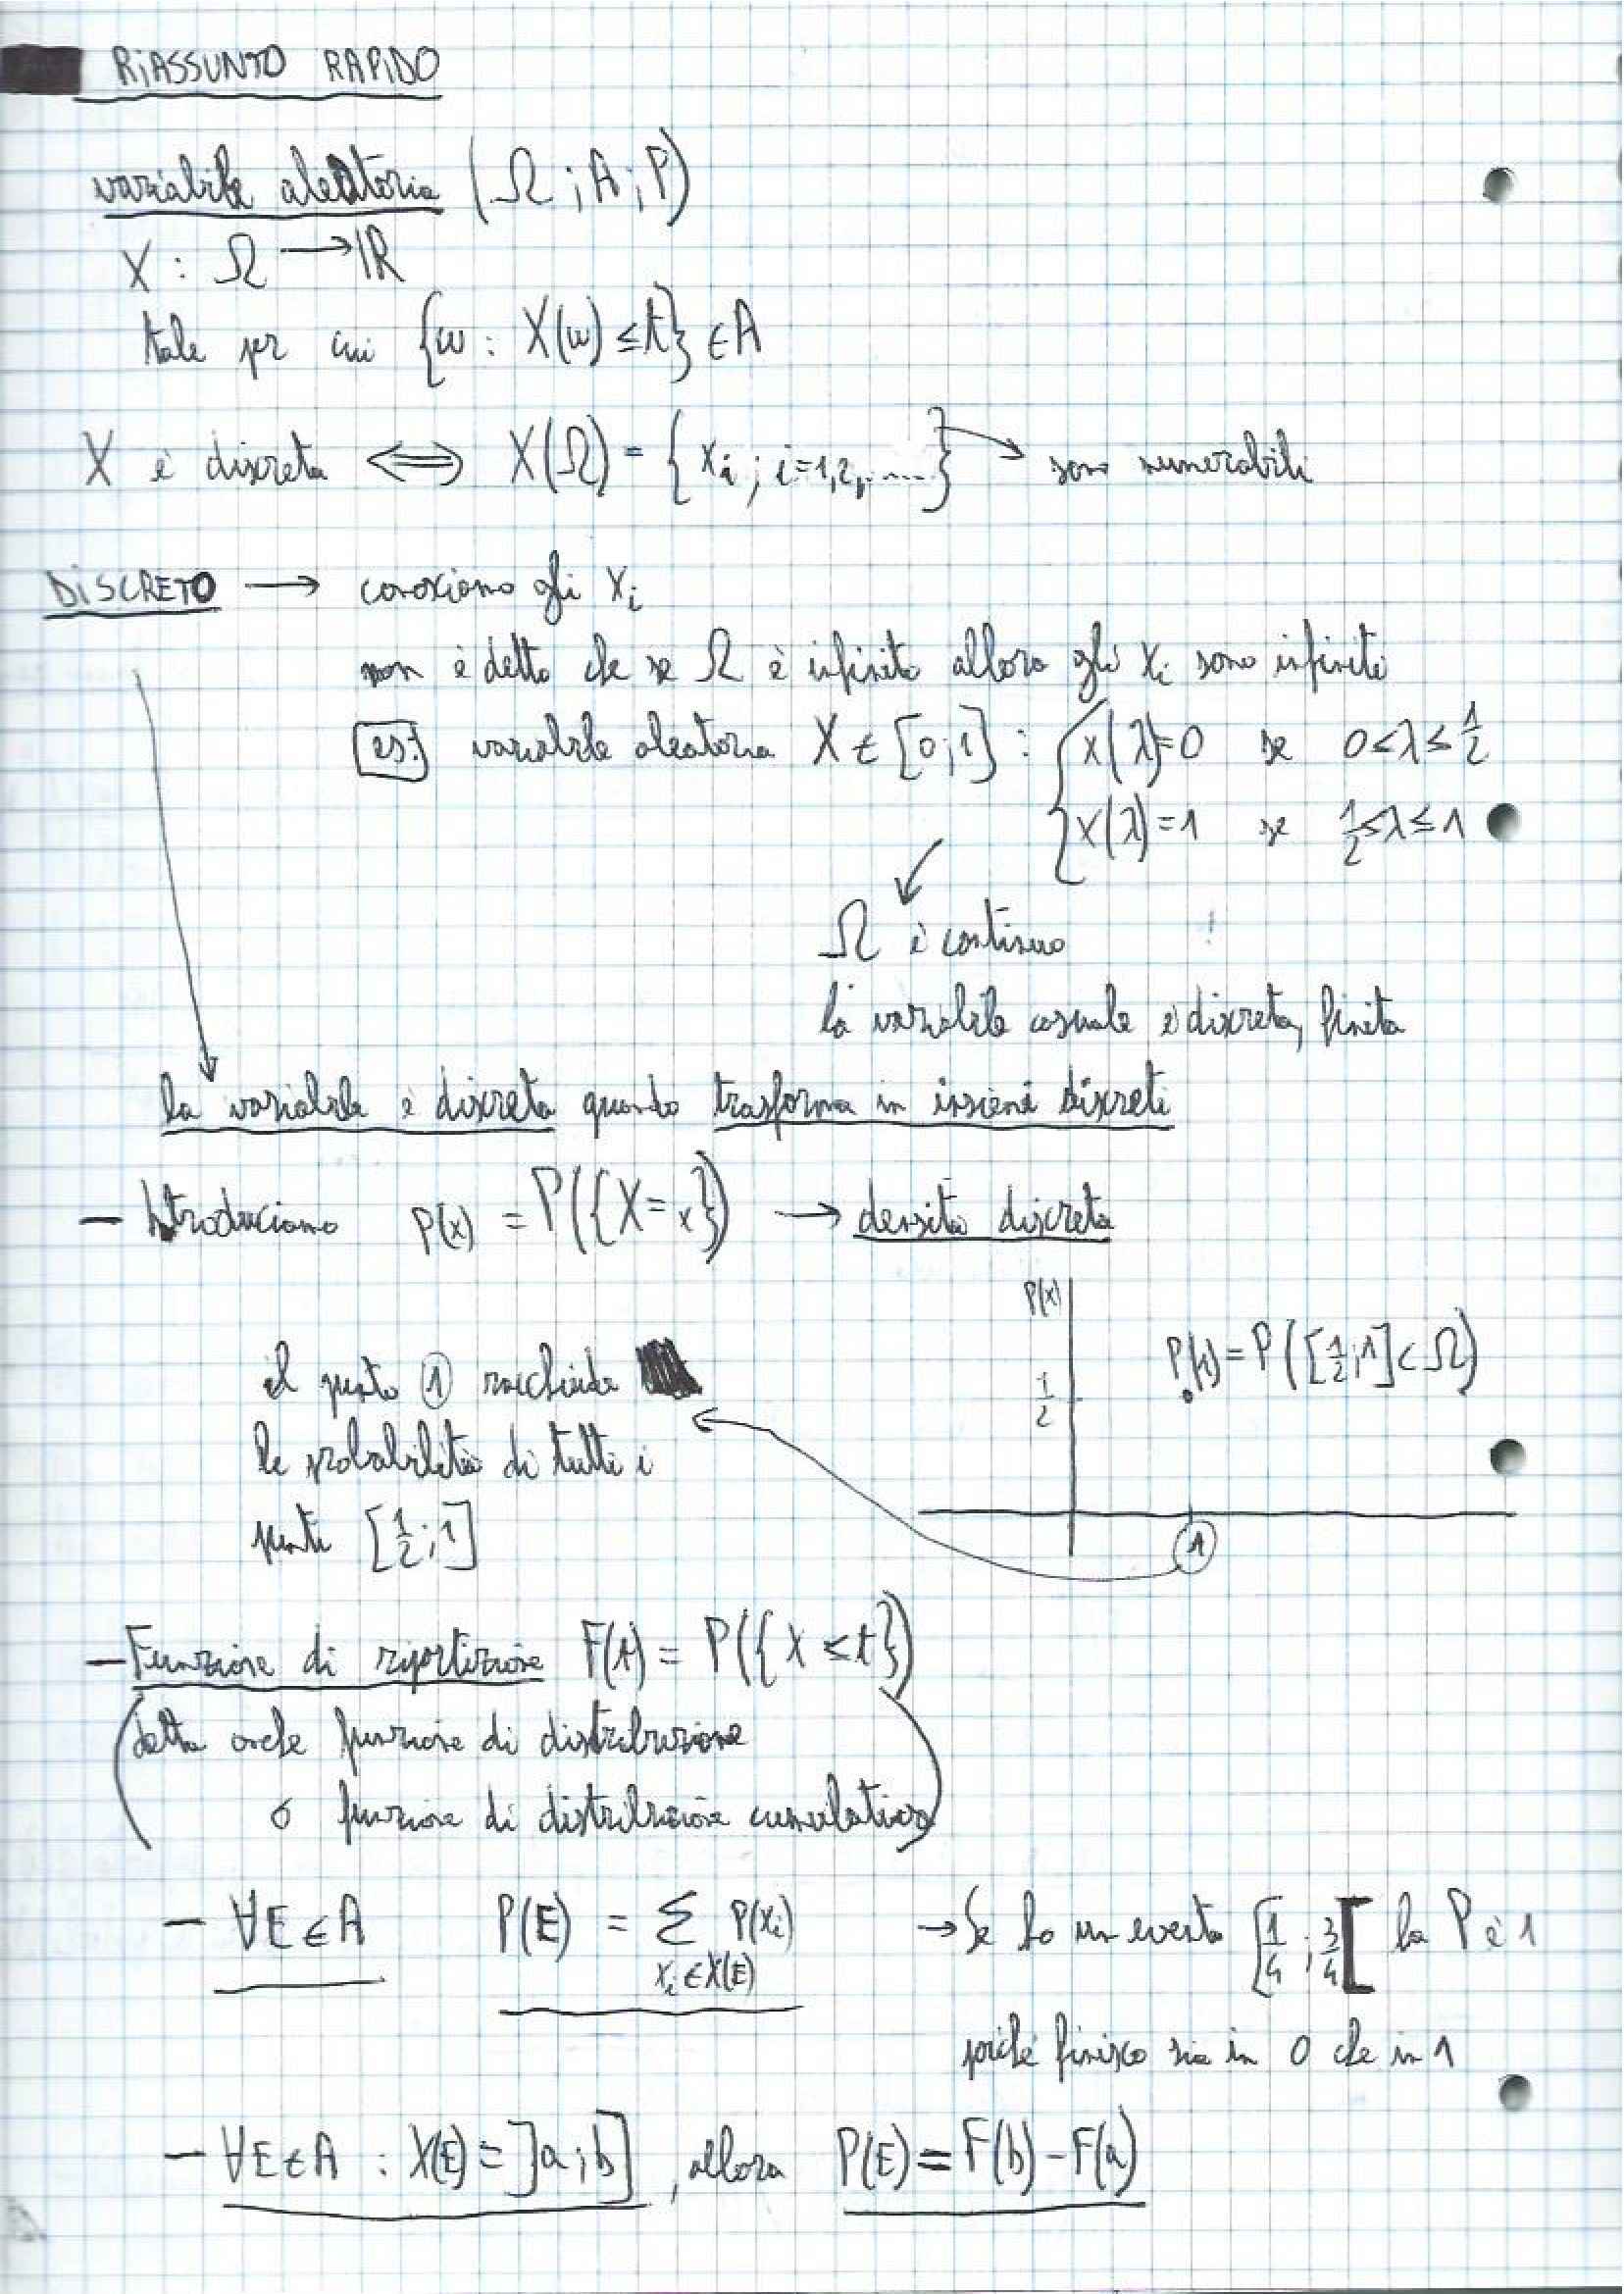 RIASSUNTO RAPIDO
variabile aleatoria (Ω ; A ; P)
X : Ω → ℝ
tale per cui {ω : X(ω) ≤ t} ∈ A
X è discreta ⟺ X(Ω) = {xᵢ ; i=1,2,.....} → sono numerabili
DISCRETO → conosciamo gli xᵢ
non è detto che se Ω è infinito allora gli xᵢ sono infiniti
es: variabile aleatoria X ∈ [0;1] : { X(λ)=0 se 0<λ≤1/2
X(λ)=1 se 1/2≤λ≤1
Ω è continuo
la variabile casuale è discreta, finita
la variabile è discreta quando trasforma in insiemi discreti
– Introduciamo p(x) = P({X=x}) → densità discreta
p(x)
1/2
P(1) = P([1/2;1] < Ω)
1
il punto 1 racchiude
le probabilità di tutti i
punti [1/2;1]
– Funzione di ripartizione F(t) = P({X ≤ t})
(detta anche funzione di distribuzione
o funzione di distribuzione cumulativa)
– ∀E ∈ A P(E) = Σ p(xᵢ) → Se ho un evento [1/4 ; 3/4[ la P è 1
xᵢ ∈ X(E)
poiché finisco sia in 0 che in 1
– ∀E ∈ A : X(E) = ]a ; b] , allora P(E) = F(b) – F(a)